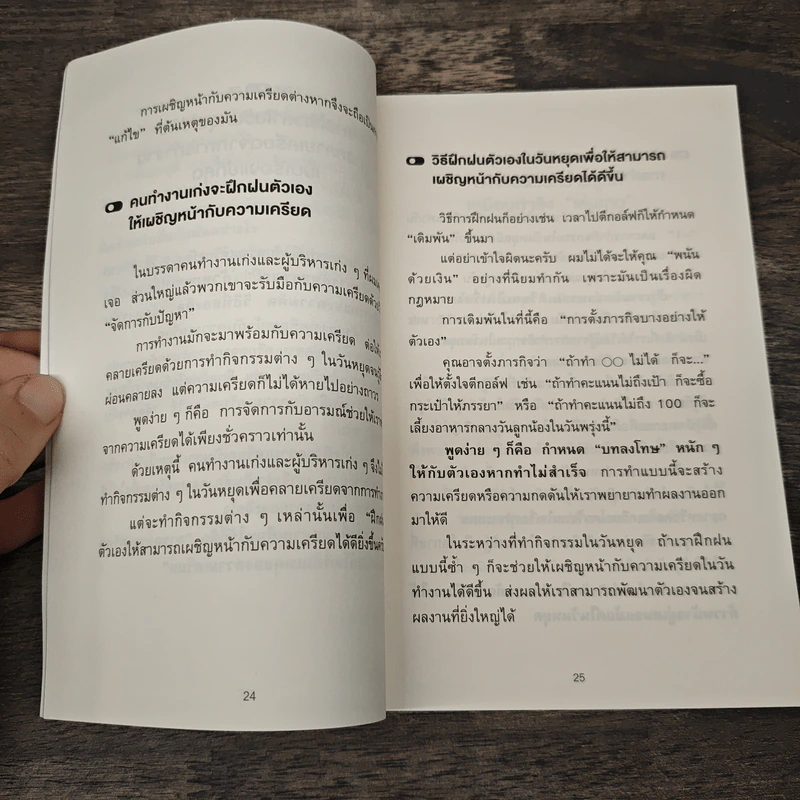 การเผชิญหน้ากับความเครียดต่างหากจึงจะถือเป็น
“แก้ไข” ที่ต้นเหตุของมัน
คนทำงานเก่งจะฝึกฝนตัวเอง
ให้เผชิญหน้ากับความเครียด
ในบรรดาคนทำงานเก่งและผู้บริหารเก่ง ๆ ที่ผม
เจอ ส่วนใหญ่แล้วพวกเขาจะรับมือกับความเครียดด้วย
“จัดการกับปัญหา”
การทำงานมักจะมาพร้อมกับความเครียด ต่อให้
คลายเครียดด้วยการทำกิจกรรมต่าง ๆ ในวันหยุดจน
ผ่อนคลายลง แต่ความเครียดก็ไม่ได้หายไปอย่างถาวร
พูดง่าย ๆ ก็คือ การจัดการกับอารมณ์ช่วยให้เรา
จากความเครียดได้เพียงชั่วคราวเท่านั้น
ด้วยเหตุนี้ คนทำงานเก่งและผู้บริหารเก่ง ๆ จึงไม่
ทำกิจกรรมต่าง ๆ ในวันหยุดเพื่อคลายเครียดจากการทำ
แต่จะทำกิจกรรมต่าง ๆ เหล่านั้นเพื่อ “ฝึกฝน
ตัวเองให้สามารถเผชิญหน้ากับความเครียดได้ดียิ่งขึ้น
24
วิธีฝึกฝนตัวเองในวันหยุดเพื่อให้สามารถ
เผชิญหน้ากับความเครียดได้ดีขึ้น
วิธีการฝึกฝนก็อย่างเช่น เวลาไปตีกอล์ฟก็ให้กำหนด
“เดิมพัน” ขึ้นมา
แต่อย่าเข้าใจผิดนะครับ ผมไม่ได้จะให้คุณ “พนัน
ด้วยเงิน” อย่างที่นิยมทำกัน เพราะมันเป็นเรื่องผิด
กฎหมาย
การเดิมพันในที่นี้คือ “การตั้งภารกิจบางอย่างให้
ตัวเอง”
คุณอาจตั้งภารกิจว่า “ถ้าทำ ○○ ไม่ได้ ก็จะ...”
เพื่อให้ตั้งใจตีกอล์ฟ เช่น “ถ้าทำคะแนนไม่ถึงเป้า ก็จะซื้อ
กระเป๋าให้ภรรยา” หรือ “ถ้าทำคะแนนไม่ถึง 100 ก็จะ
เลี้ยงอาหารกลางวันลูกน้องในวันพรุ่งนี้”
พูดง่าย ๆ ก็คือ กำหนด “บทลงโทษ” หนัก ๆ
ให้กับตัวเองหากทำไม่สำเร็จ การทำแบบนี้จะสร้าง
ความเครียดหรือความกดดันให้เราพยายามทำผลงานออก
มาให้ดี
ในระหว่างที่ทำกิจกรรมในวันหยุด ถ้าเราฝึกฝน
แบบนี้ซ้ำ ๆ ก็จะช่วยให้เผชิญหน้ากับความเครียดในวัน
ทำงานได้ดีขึ้น ส่งผลให้เราสามารถพัฒนาตัวเองจนสร้าง
ผลงานที่ยิ่งใหญ่ได้
25